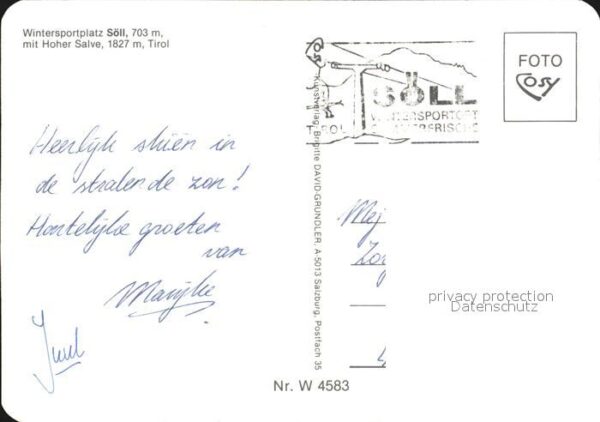 Wintersportplatz Söll, 703 m,
mit Hoher Salve, 1827 m, Tirol
Heerlijk skiën in
de stralende zon!
Hartelijke groeten
van
Marijke
SÖLL
WINTERSPORTORT
TIROL
FOTO
Cosy
Kunstverlag Brigitte DAVID-GRÜNDLER, A-5013 Salzburg, Postfach 35
Mej
privacy protection
Datenschutz
Nr. W 4583